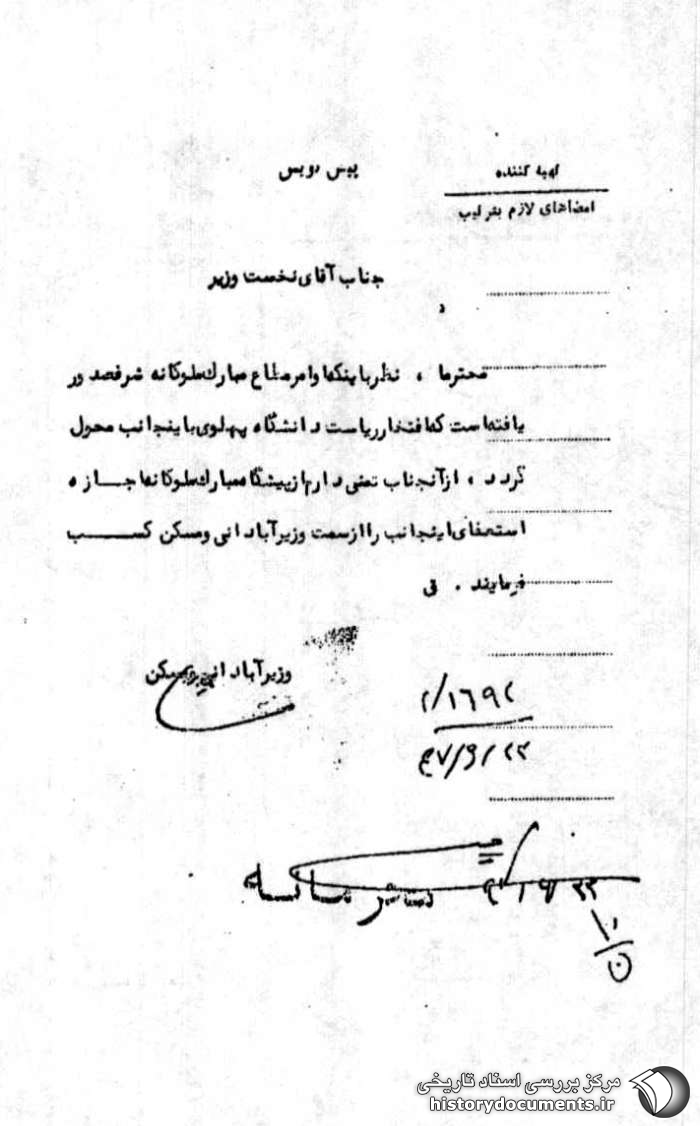 تهیه کننده
پیش نویس
امضاهای لازم بترتیب
جناب آقای نخست وزیر
محترما ، نظر باینکه اوامر مطاع مبارک ملوکانه شرفصدور
یافته است که افتخار ریاست دانشگاه پهلوی باینجانب محول
گردد ، از آنجناب تمنی دارم از پیشگاه مبارک ملوکانه اجازه
استعفای اینجانب را از سمت وزیر آبادانی و مسکن کسب
فرمایند . ق
وزیر آبادانی و مسکن
۲/۱۶۹۲
۴۷/۹/۲۲
مرکز بررسی اسناد تاریخی
historydocuments.ir